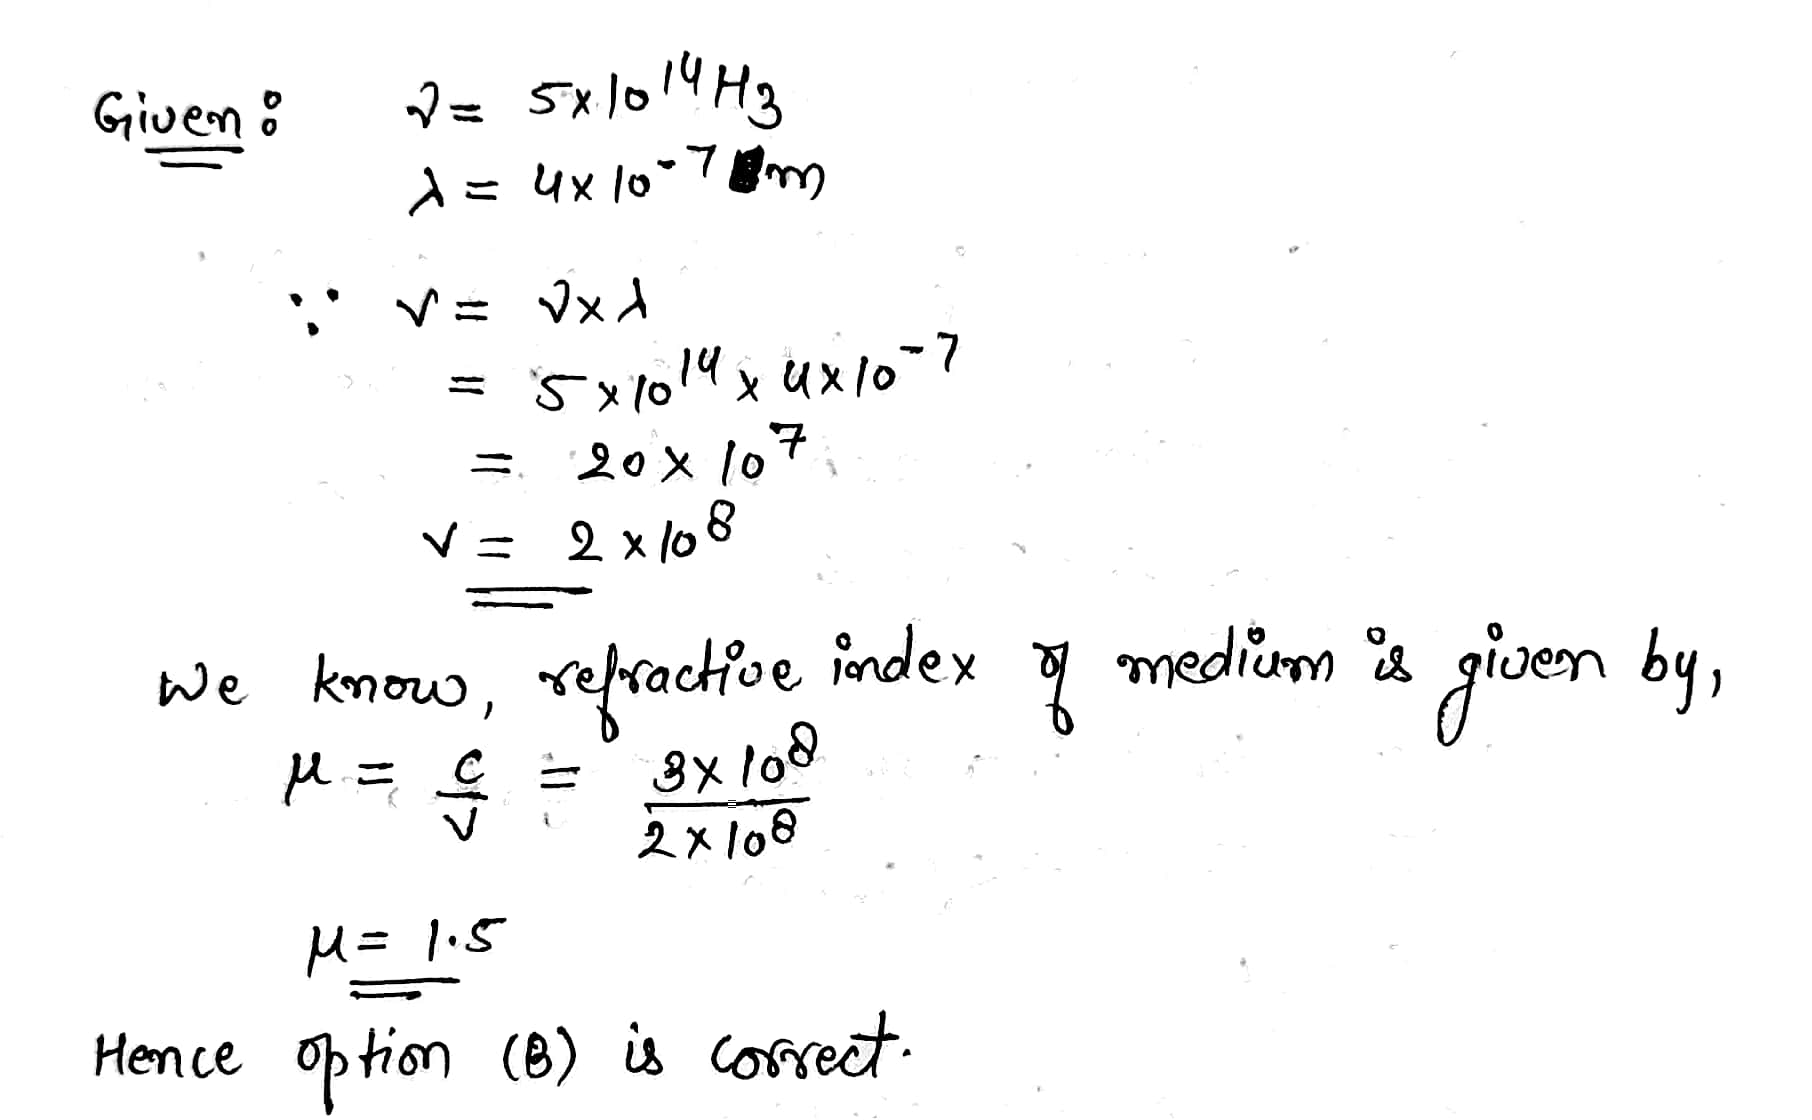 Given: ν = 5×10¹⁴ Hz
λ = 4×10⁻⁷ m
∵ v = ν×λ
= 5×10¹⁴ × 4×10⁻⁷
= 20×10⁷
v = 2×10⁸
We know, refractive index of medium is given by,
μ = c/v = 3×10⁸/2×10⁸
μ = 1.5
Hence option (B) is correct.